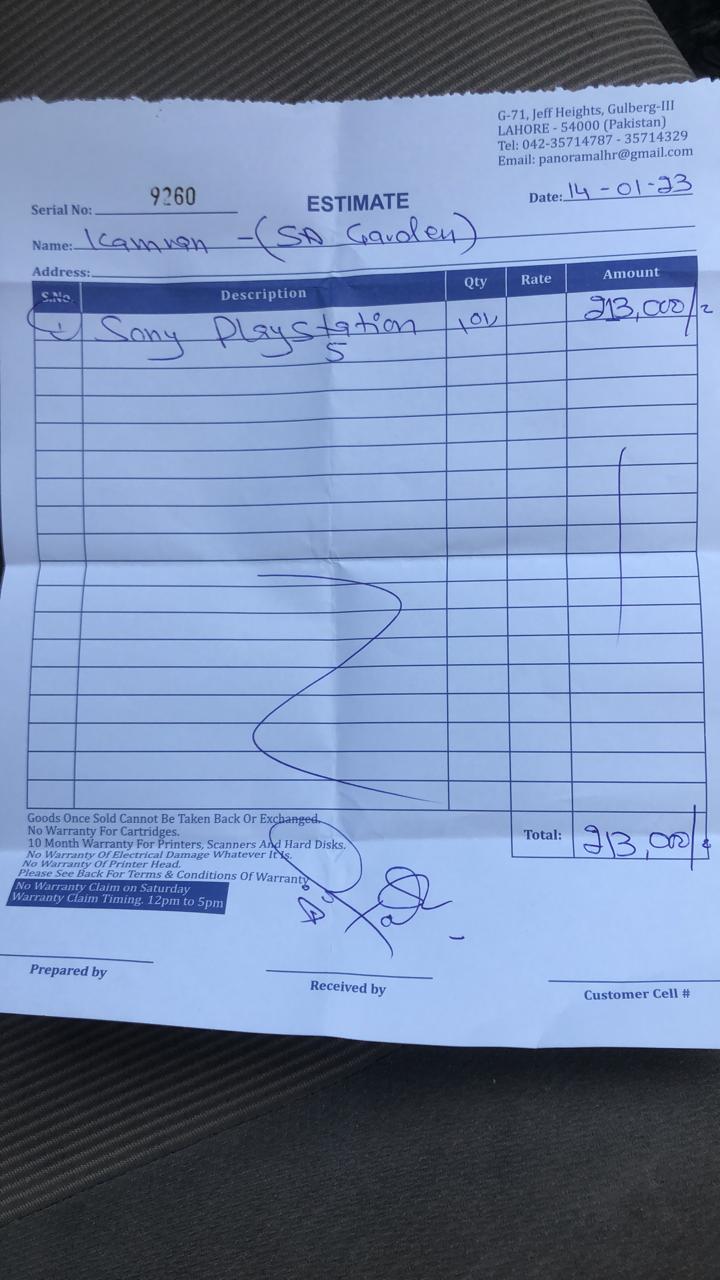 G-71, Jeff Heights, Gulberg-III
LAHORE - 54000 (Pakistan)
Tel: 042-35714787 - 35714329
Email: panoramalhr@gmail.com
Serial No: 9260
ESTIMATE
Date: 14-01-23
Name: Kamran - (SA Garden)
Address:
S.No. Description Qty Rate Amount
1 Sony PlayStation 213,000/
5
Total: 213,000/
Goods Once Sold Cannot Be Taken Back Or Exchanged.
No Warranty For Cartridges.
10 Month Warranty For Printers, Scanners And Hard Disks.
No Warranty Of Electrical Damage Whatever It Is.
No Warranty Of Printer Head.
Please See Back For Terms & Conditions Of Warranty.
No Warranty Claim on Saturday
Warranty Claim Timing. 12pm to 5pm
Prepared by
Received by
Customer Cell #